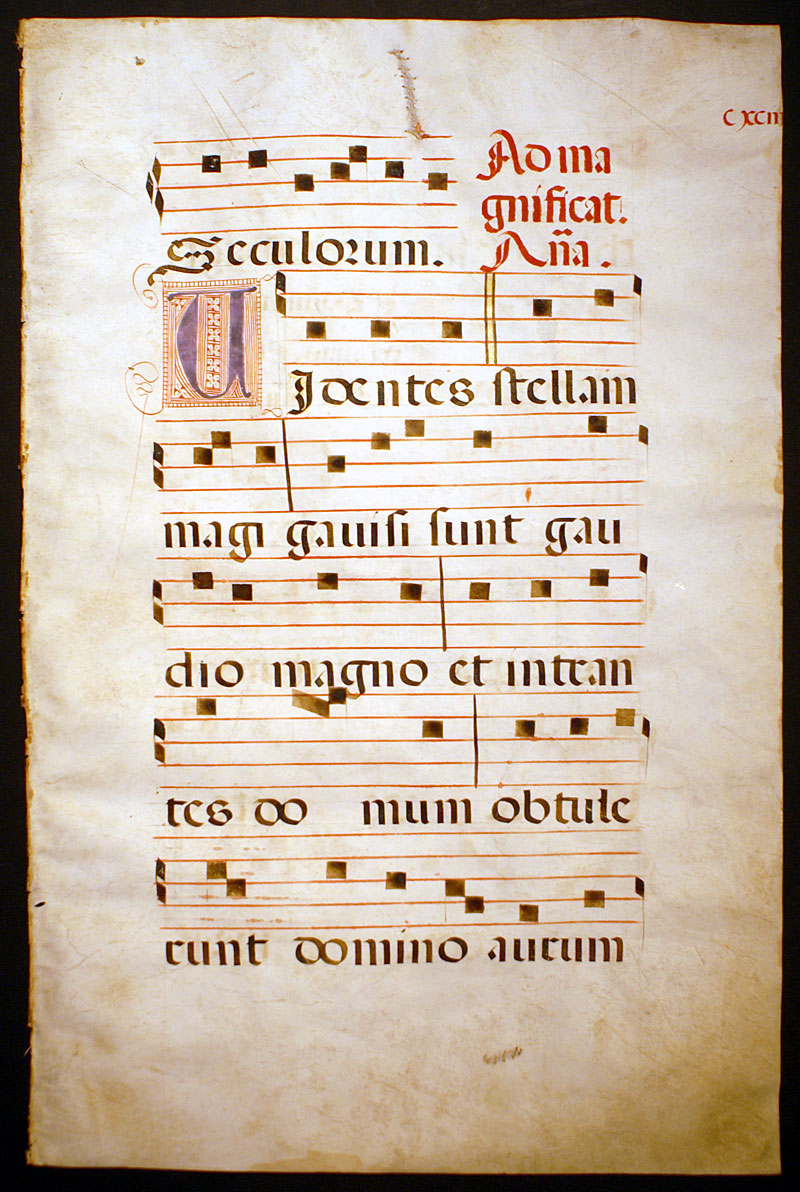 CXCIII
Ad ma
gnificat.
Seculorum. Aña.
VIdentes stellam
magi gauisi sunt gau
dio magno et intran
tes do mum obtule
runt domino aurum